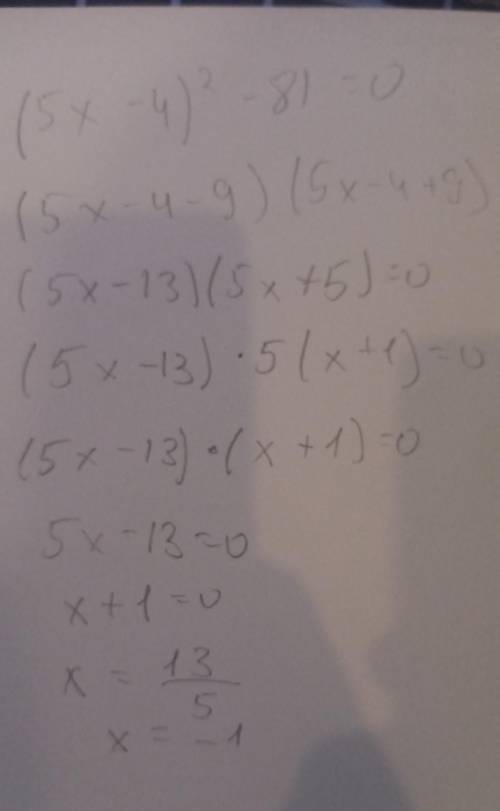 (5x - 4)² - 81 = 0
(5x - 4 - 9)(5x - 4 + 9)
(5x - 13)(5x + 5) = 0
(5x - 13) · 5(x + 1) = 0
(5x - 13) · (x + 1) = 0
5x - 13 = 0
x + 1 = 0
x = 13/5
x = -1